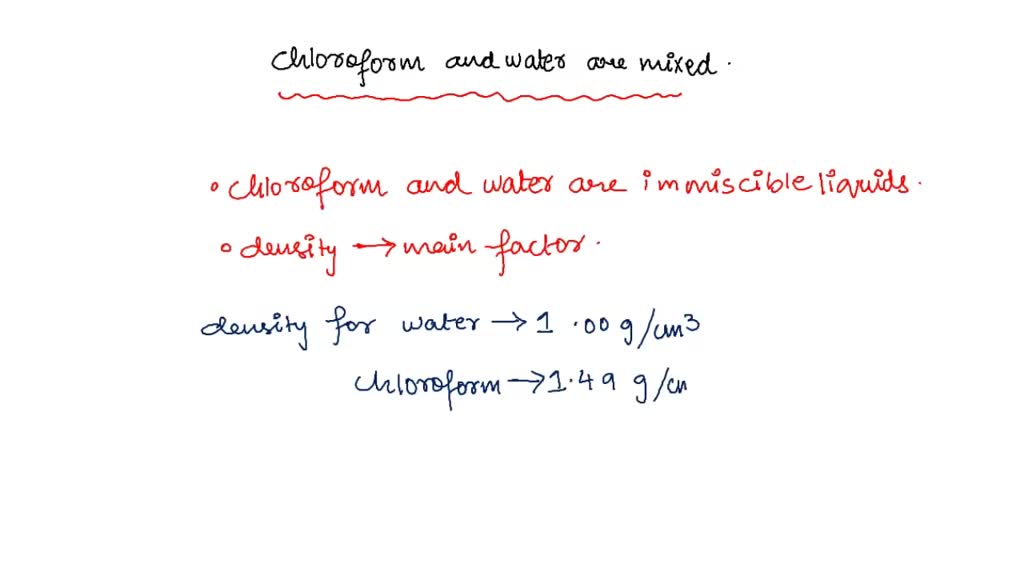 chloroform and water are mixed.
• chloroform and water are immiscible liquids.
• density → main factor.
density for water → 1.00 g/cm³
chloroform → 1.49 g/cm